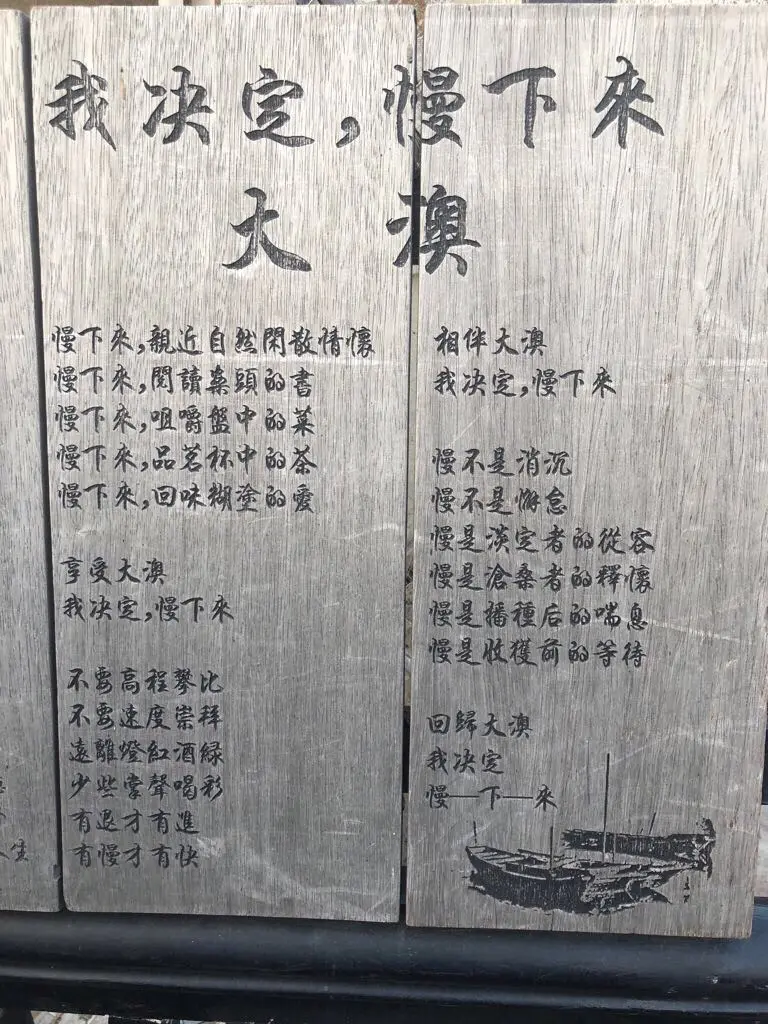 我决定,慢下來
大澳
慢下來,親近自然閑散情懷
慢下來,閱讀案頭的書
慢下來,咀嚼盤中的菜
慢下來,品茗杯中的茶
慢下來,回味糊塗的愛
享受大澳
我决定,慢下來
不要高程攀比
不要速度崇拜
遠離燈紅酒綠
少些掌聲喝彩
有退才有進
有慢才有快
相伴大澳
我决定,慢下來
慢不是消沉
慢不是懈怠
慢是淡定者的從容
慢是滄桑者的釋懷
慢是播種后的喘息
慢是收獲前的等待
回歸大澳
我决定
慢—下—來